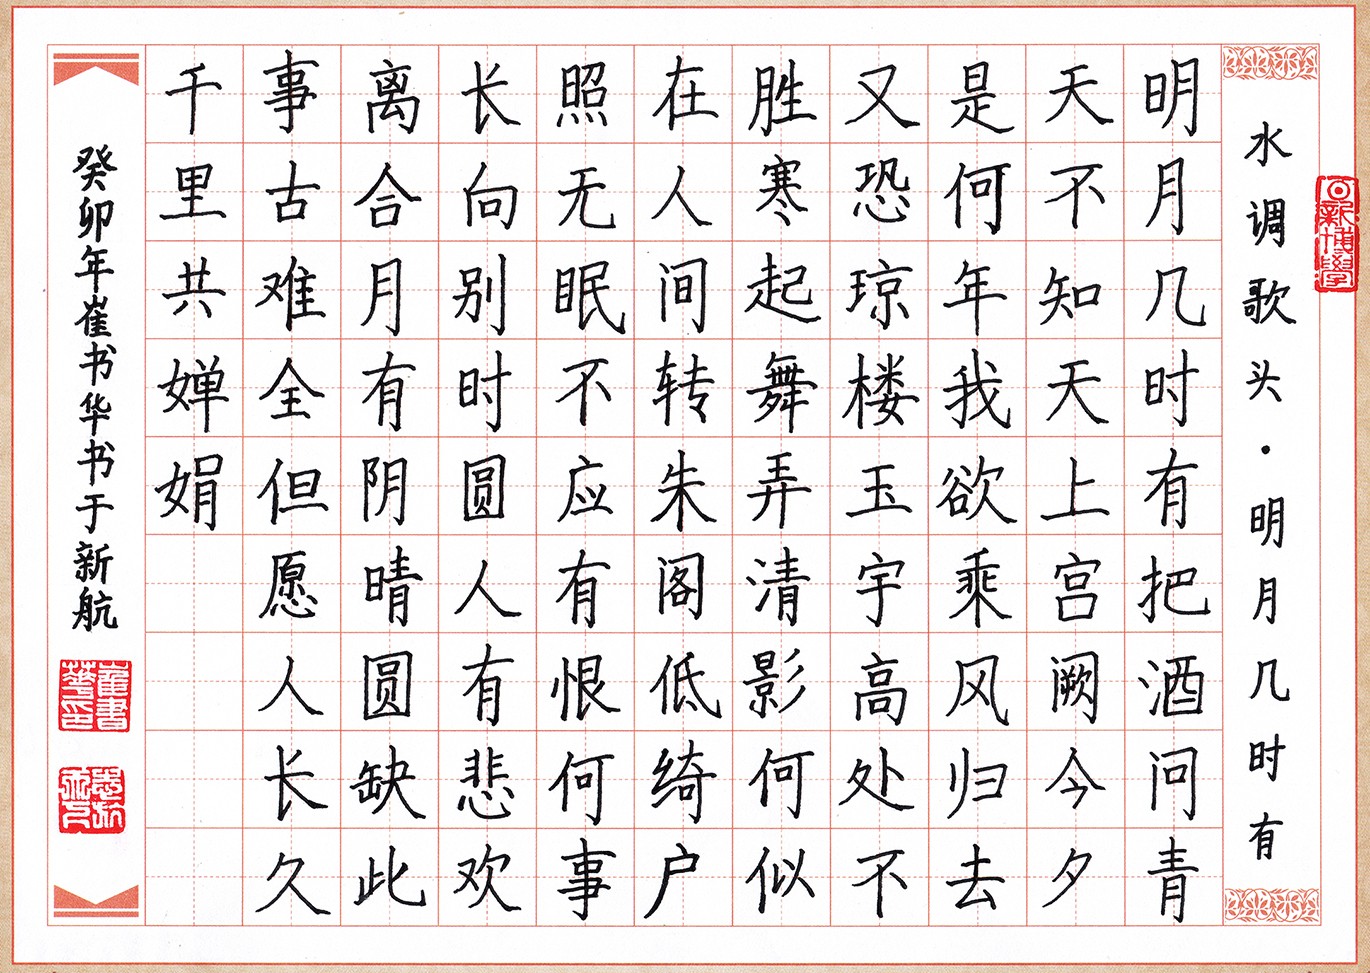 水调歌头·明月几时有
明月几时有把酒问青
天不知天上宫阙今夕
是何年我欲乘风归去
又恐琼楼玉宇高处不
胜寒起舞弄清影何似
在人间转朱阁低绮户
照无眠不应有恨何事
长向别时圆人有悲欢
离合月有阴晴圆缺此
事古难全但愿人长久
千里共婵娟
癸卯年崔书华书于新航
崔書華印